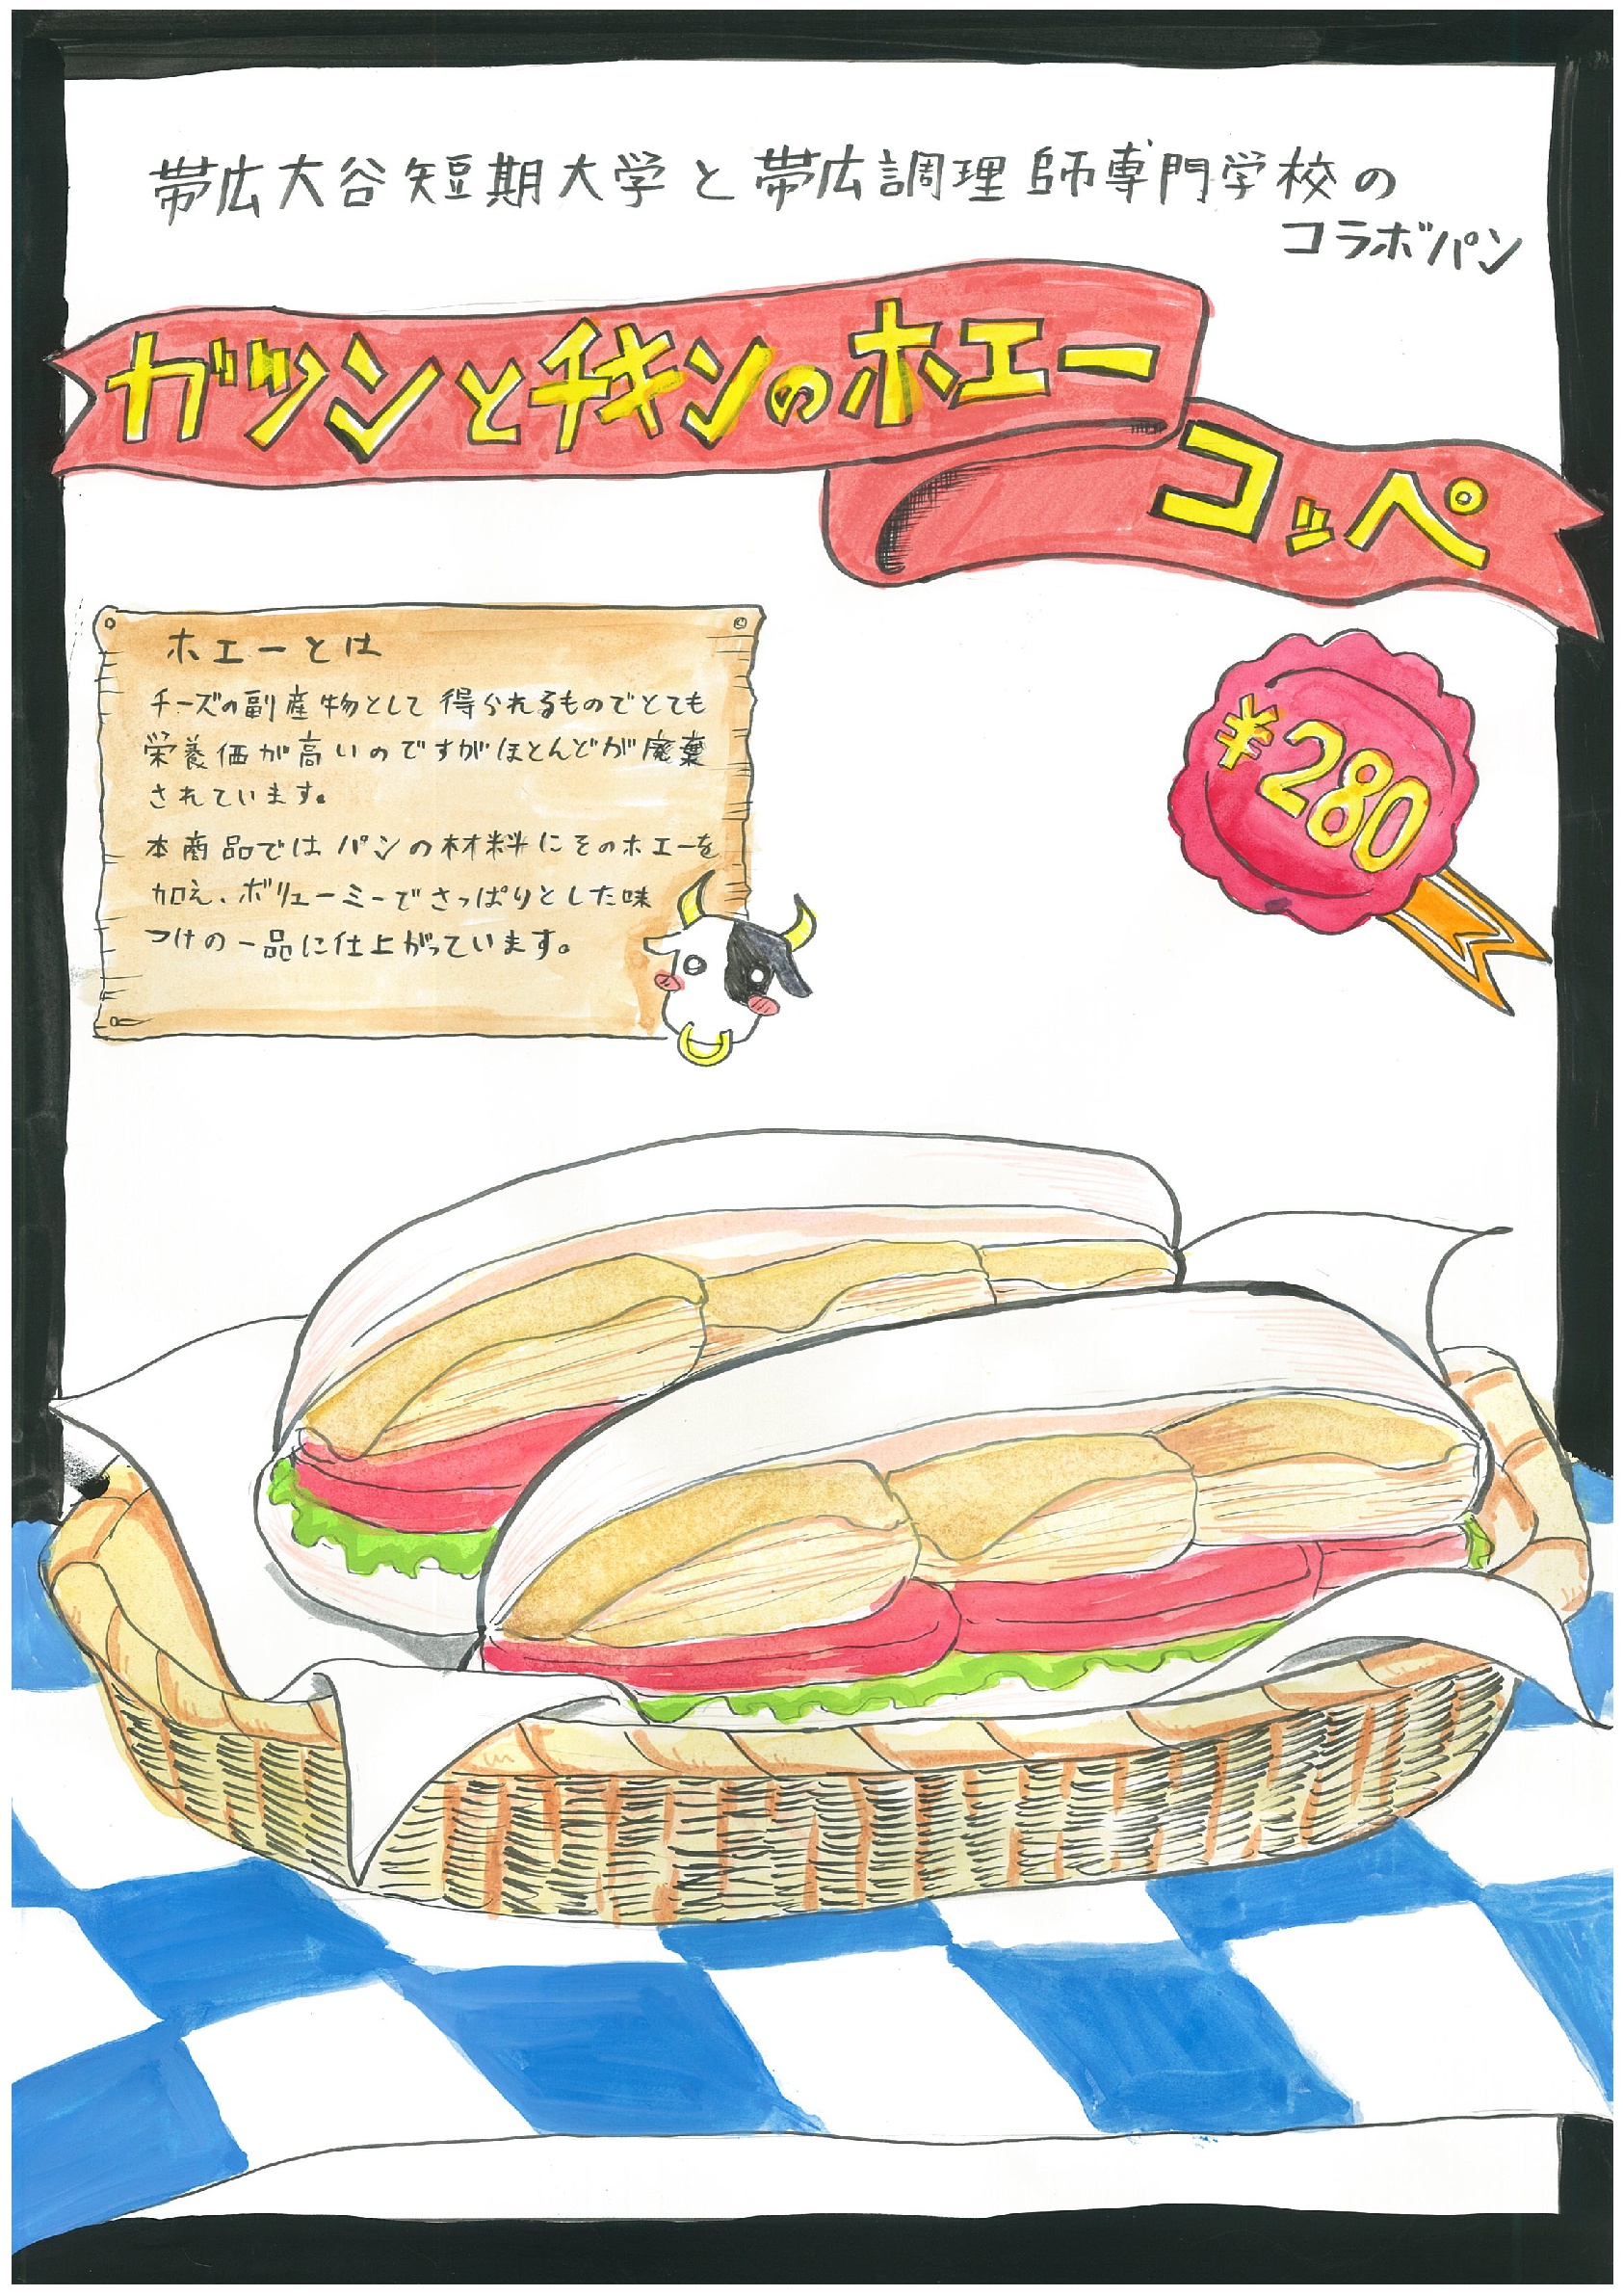 帯広大谷短期大学と帯広調理師専門学校の
コラボパン
ガツンとチキンのホエー
コッペ
ホエーとは
チーズの副産物として得られるものでとても
栄養価が高いのですがほとんどが廃棄
されています。
本商品ではパンの材料にそのホエーを
加え、ボリューミーでさっぱりとした味
つけの一品に仕上がっています。
¥280